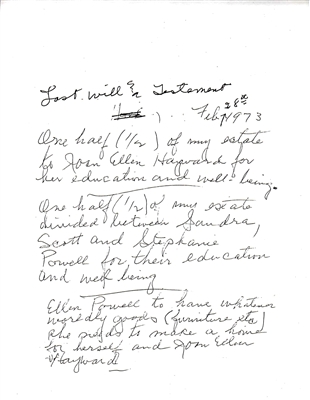 Last Will & Testament
Feb 28th 1973
One half (1/2) of my estate
to Joan Ellen Hayward for
her education and well-being.
One half (1/2) of my estate
divided between Sandra,
Scott and Stephanie
Powell for their education
and well being
Ellen Powell to have whatever
worldly goods (furniture etc)
she needs to make a home
for herself and Joan Ellen
Hayward